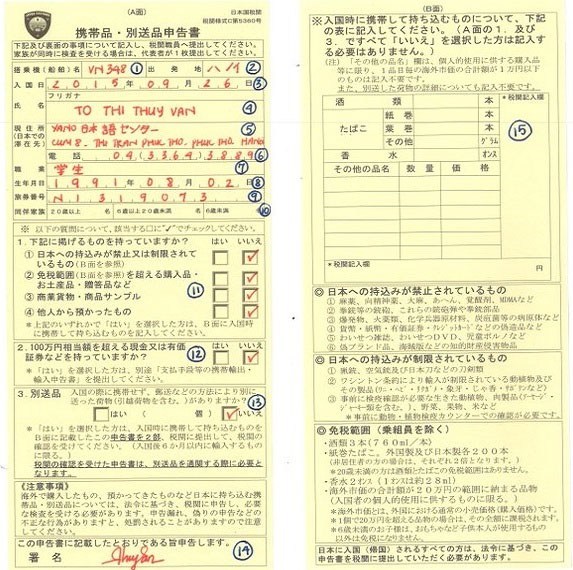 (A面)
日本国税関
税関様式C第5360号
携帯品・別送品申告書
下記及び裏面の事項について記入し、税関職員へ提出してください。
家族が同時に検査を受ける場合は、代表者が1枚提出してください。
搭乗機(船舶)名 VN348 ① 出発地 ハノイ ②
入国日 2015年09月26日 ③
フリガナ
氏名 TO THI THUY VAN ④
現住所
(日本での滞在先)
YANO日本語センター ⑤
電話 04(3364)3889 ⑥
職業 学生 ⑦
生年月日 1991年08月02日 ⑧
旅券番号 N1319073 ⑨
同伴家族 20歳以上 名 6歳以上20歳未満 名 6歳未満 名 ⑩
※ 以下の質問について、該当する□に"✓"でチェックしてください。
1. 下記に掲げるものを持っていますか? はい いいえ
① 日本への持込が禁止又は制限されているもの(B面を参照)
② 免税範囲(B面を参照)を超える購入品・お土産品・贈答品など
③ 商業貨物・商品サンプル ⑪
④ 他人から預かったもの
*上記のいずれかで「はい」を選択した方は、B面に入国時に携帯して持ち込むものを記入してください。
2. 100万円相当額を超える現金又は有価証券などを持っていますか? ⑫ はい いいえ
*「はい」を選択した方は、別途「支払手段等の携帯輸出・輸入申告書」を提出してください。
3. 別送品 入国の際に携帯せず、郵送などの方法により別に送った荷物(引越荷物を含む。)がありますか? ⑬
はい( 個) いいえ
*「はい」を選択した方は、入国時に携帯して持ち込むものをB面に記載したこの申告書を2部、税関に提出して、税関の確認を受けてください。(入国後6か月以内に輸入するものに限る。)
税関の確認を受けた申告書は、別送品を通関する際に必要となります。
《注意事項》
海外で購入したもの、預かってきたものなど日本に持ち込む携帯品・別送品については、法令に基づき、税関に申告し、必要な検査を受ける必要があります。申告漏れ、偽りの申告などの不正な行為がありますと、処罰されることがありますので注意してください。
この申告書に記載したとおりである旨申告します。
署名 ⑭
(B面)
※入国時に携帯して持ち込むものについて、下記の表に記入してください。(A面の1.及び3.ですべて「いいえ」を選択した方は記入する必要はありません。)
(注)「その他の品名」欄は、個人的使用に供する購入品等に限り、1品目毎の海外市価の合計額が1万円以下のものは記入不要です。
また、別送した荷物の詳細についても記入不要です。
酒類 本 *税関記入欄
たばこ 紙巻 本 ⑮
葉巻 本
その他 グラム
香水 オンス
その他の品名 数量 価格
*税関記入欄
円
◎ 日本への持込みが禁止されているもの
① 麻薬、向精神薬、大麻、あへん、覚醒剤、MDMAなど
② 拳銃等の銃砲、これらの銃砲弾や拳銃部品
③ 爆発物、火薬類、化学兵器原材料、炭疽菌等の病原体など
④ 貨幣・紙幣・有価証券・クレジットカードなどの偽造品など
⑤ わいせつ雑誌、わいせつDVD、児童ポルノなど
⑥ 偽ブランド品、海賊版などの知的財産侵害物品
◎ 日本への持込みが制限されているもの
① 猟銃、空気銃及び日本刀などの刀剣類
② ワシントン条約により輸入が制限されている動植物及びその製品(ワニ・ヘビ・リクガメ・象牙・じゃ香・サボテンなど)
③ 事前に検疫確認が必要な生きた動植物、肉製品(ソーセージ・ジャーキー類を含む。)、野菜、果物、米など
*事前に動物・植物検疫カウンターでの確認が必要です。
◎ 免税範囲(乗組員を除く)
・酒類3本(760ml/本)
・紙巻たばこ。外国製及び日本製各200本
(非居住者の方の場合は、それぞれ2倍となります。)
*20歳未満の方は酒類とたばこの免税範囲はありません。
・香水2オンス(1オンスは約28ml)
・海外市価の合計額が20万円の範囲に納まる品物
(入国者の個人的使用に供するものに限る。)
*海外市価とは、外国における通常の小売価格(購入価格)です。
*1個で20万円を超える品物の場合は、その全額に課税されます。
*6歳未満のお子様は、おもちゃなど子供本人が使用するもの以外は免税になりません。
日本に入国(帰国)されるすべての方は、法令に基づき、この申告書を税関に提出していただく必要があります。